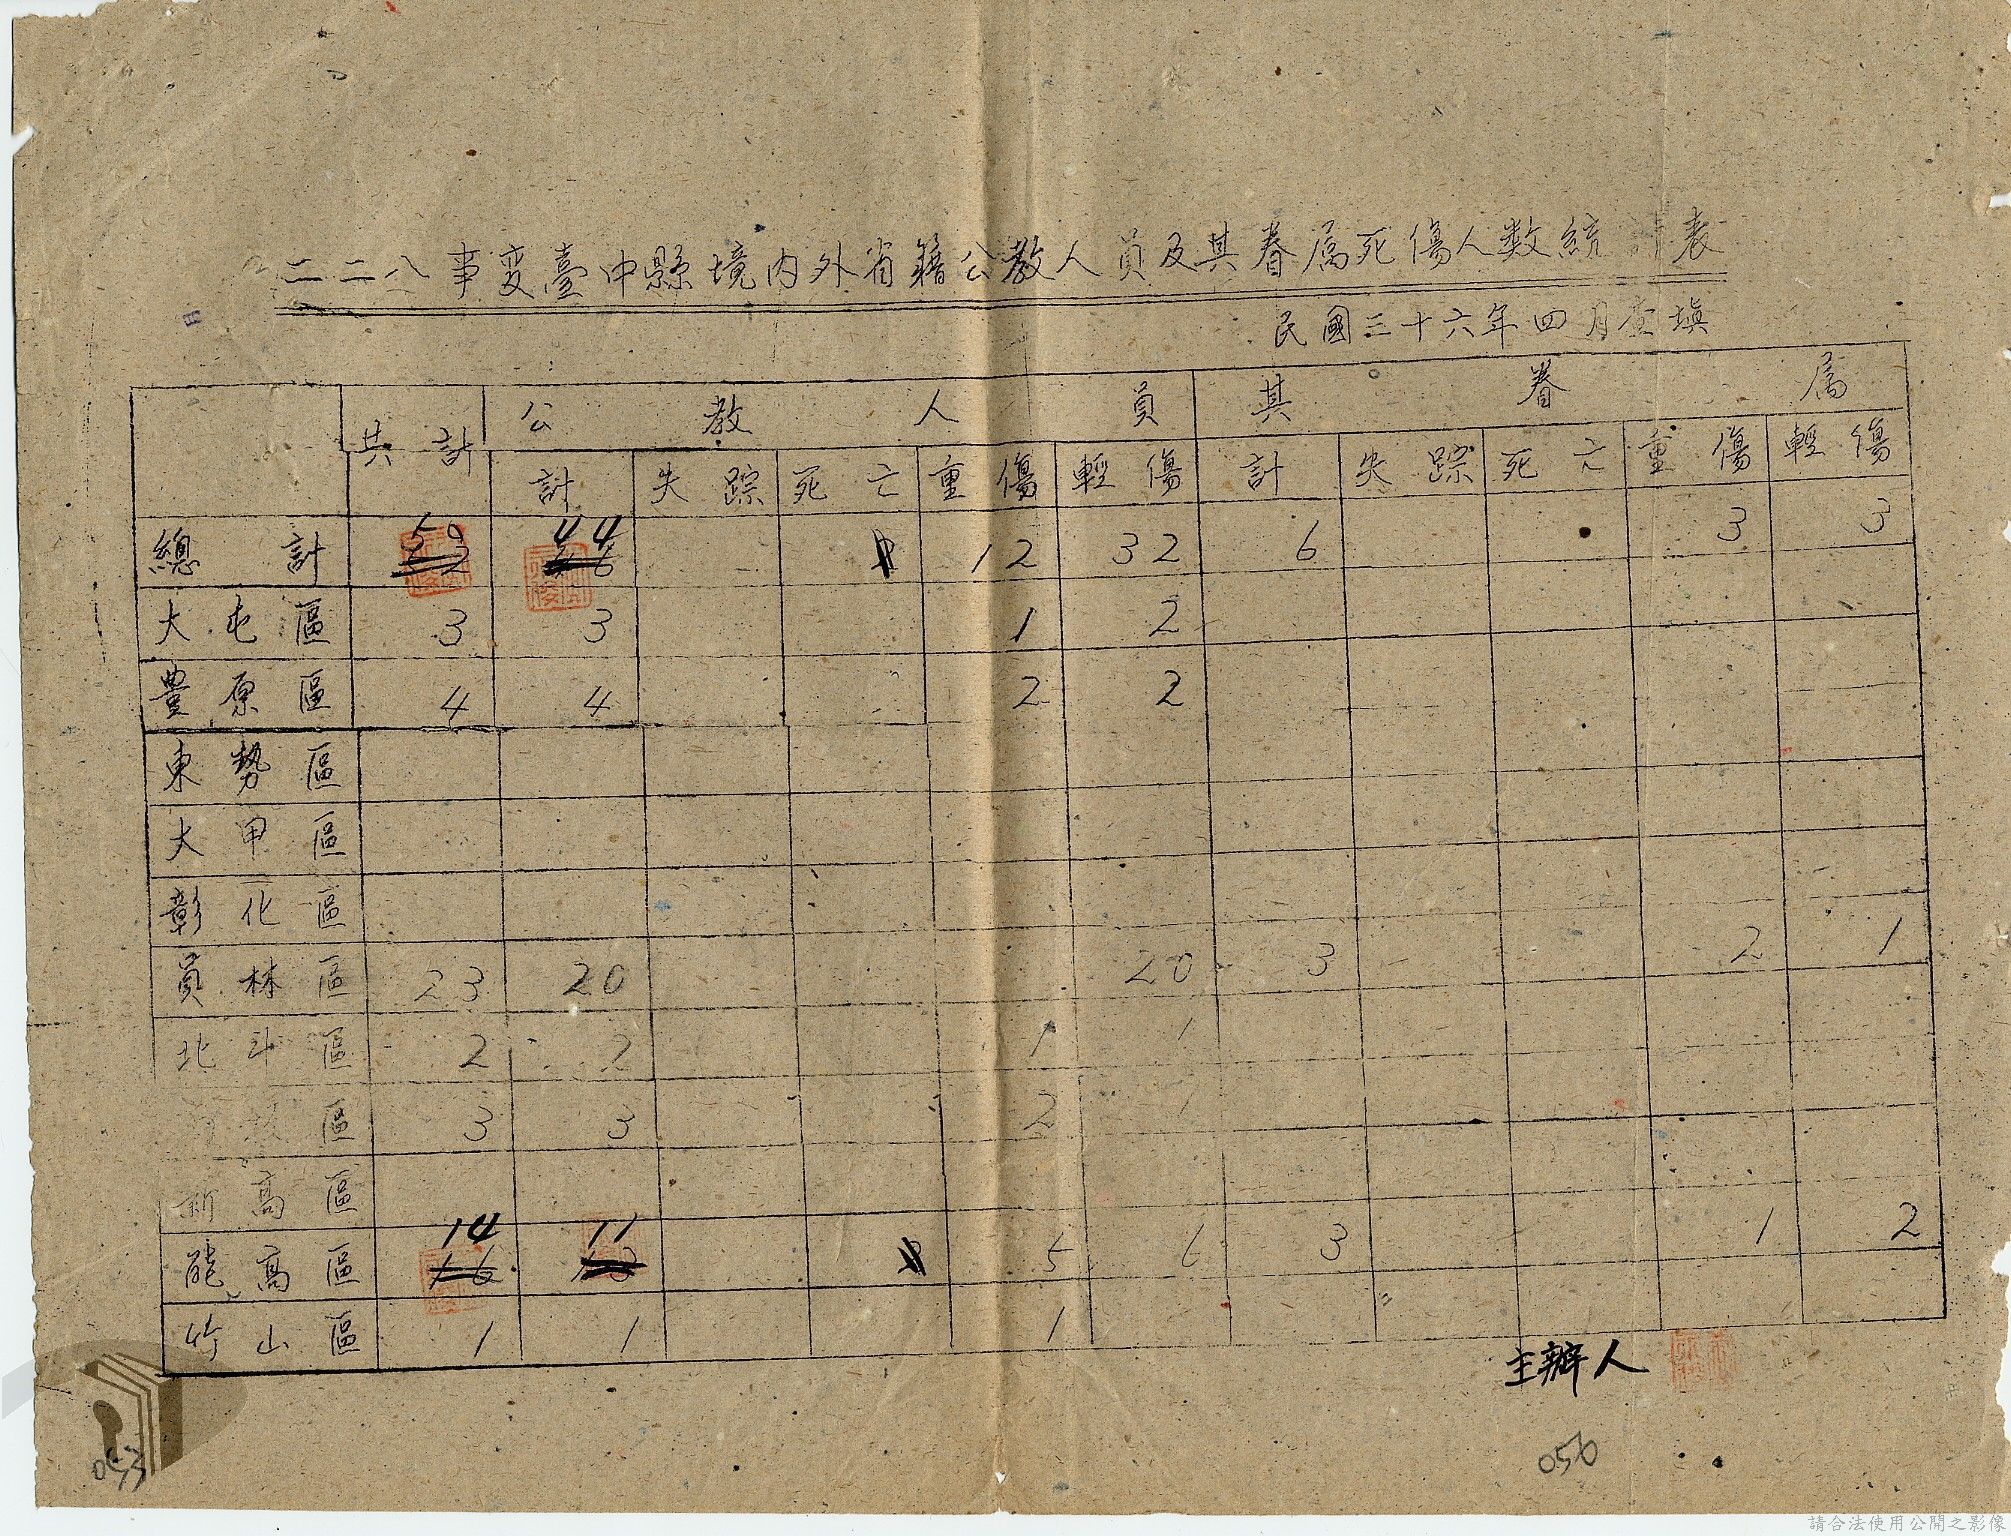 二二八事变臺中縣境内外省籍公教人員及其眷属死傷人数統計表
民國三十六年四月查填
共計 公教人員 其眷属
計 失踪 死亡 重傷 輕傷 計 失踪 死亡 重傷 輕傷
50 44
總計 52 46 12 32 6 3 3
大屯區 3 3 1 2
豊原區 4 4 2 2
東勢區
大甲區
彰化區
員林區 23 20 20 3 2 1
北斗區 2 2 1 1
區 3 3 2 1
新高區
14 11
能高區 16 13 5 6 3 1 2
竹山區 1 1 1
主辦人
053
050
請合法使用公開之影像